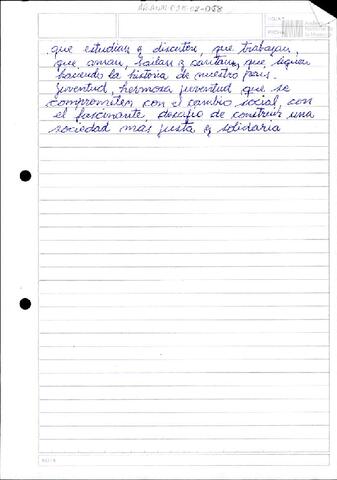 que estudian y discuten, que trabajan,
que aman, bailan y cantan, que siguen
haciendo la historia de nuestro país.
Juventud, hermosa juventud que se
compromete, con el cambio social, con
el fascinante, desafío de construir una
sociedad más justa y solidaria